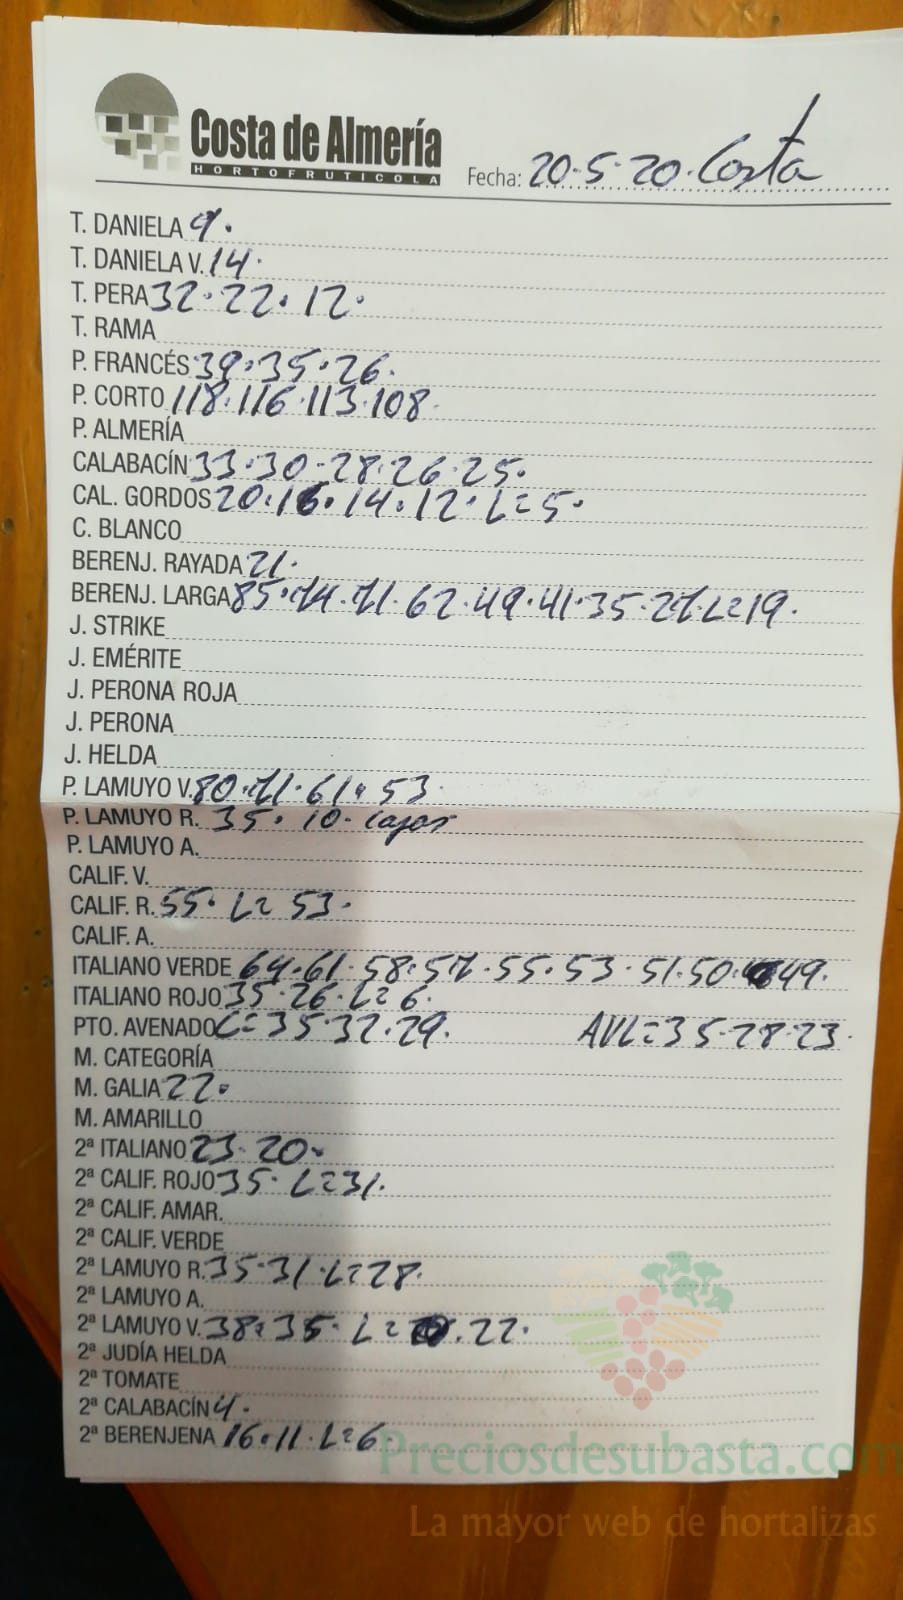 Costa de Almería
HORTOFRUTICOLA
Fecha: 20.5.20. Costa
T. DANIELA 9.
T. DANIELA V. 14.
T. PERA 32.22.12.
T. RAMA
P. FRANCÉS 39.35.26.
P. CORTO 118.116.113.108.
P. ALMERÍA
CALABACÍN 33.30.28.26.25.
CAL. GORDOS 20.16.14.12. L=5.
C. BLANCO
BERENJ. RAYADA 21.
BERENJ. LARGA 85.74.71.62.49.41.35.27. L=19.
J. STRIKE
J. EMÉRITE
J. PERONA ROJA
J. PERONA
J. HELDA
P. LAMUYO V. 80.71.61.53.
P. LAMUYO R. 35.10. cajas
P. LAMUYO A.
CALIF. V.
CALIF. R. 55. L=53.
CALIF. A.
ITALIANO VERDE 64.61.58.57.55.53.51.50.49.
ITALIANO ROJO 35.26. L=6.
PTO. AVENADO C=35.32.29. AVL=35.28.23.
M. CATEGORÍA
M. GALIA 22.
M. AMARILLO
2ª ITALIANO 23.20.
2ª CALIF. ROJO 35. L=31.
2ª CALIF. AMAR.
2ª CALIF. VERDE
2ª LAMUYO R. 35.31. L=28.
2ª LAMUYO A.
2ª LAMUYO V. 38.35. L= 22.
2ª JUDÍA HELDA
2ª TOMATE
2ª CALABACÍN 4.
2ª BERENJENA 16.11. L=6
Preciosdesubasta.com
La mayor web de hortalizas